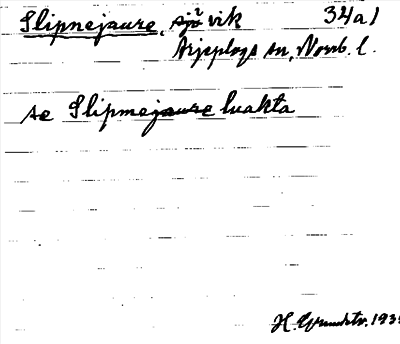 Slipnejaure, sjö vik 34a1
Arjeplogs sn, Norrb. l.
se Slipmejaure luakta
H. Grundstr. 193